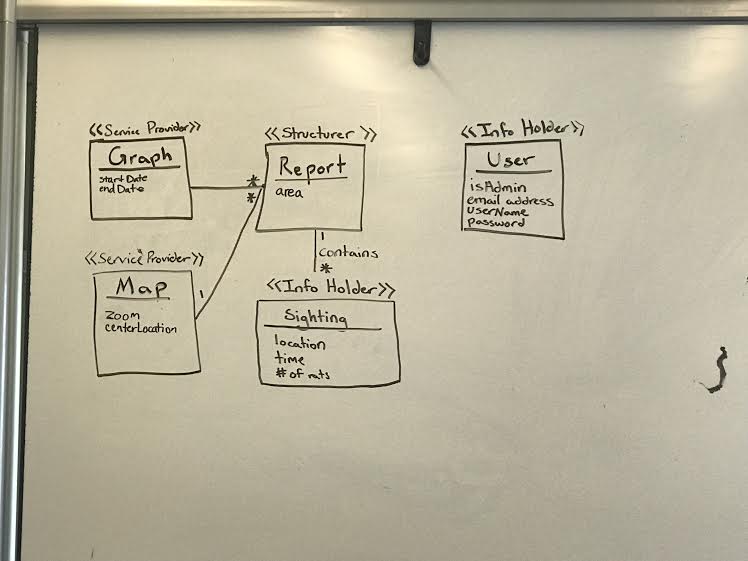 <<Service Provider>>
Graph
startDate
endDate
*
*
<<Structurer >>
Report
area
1
contains
*
<<Info Holder>>
User
isAdmin
email address
userName
password
<<Service Provider>>
Map
zoom
centerLocation
1
<<Info Holder>>
Sighting
location
time
# of rats